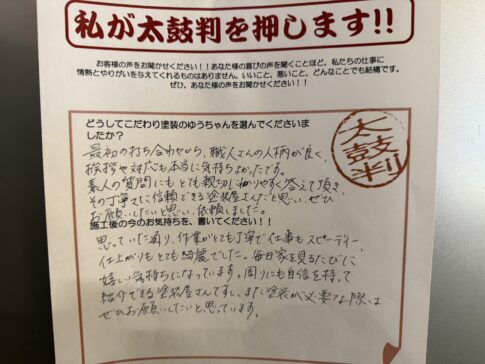 私が太鼓判を押します!!
お客様の声をお聞かせください！！あなた様の喜びの声を聞くことほど、私たちの仕事に
情熱とやりがいを与えてくれるものはありません。いいこと、悪いこと、どんなことでも結構です。
ぜひ、あなた様の声をお聞かせください！！
どうしてこだわり塗装のゆうちゃんを選んでくださいま
したか？
太鼓判
最初の打ち合わせから、職人さんの人柄が良く、
挨拶や対応も本当に気持ちよかったです。
素人の質問にもとても親切に分かりやすく答えて頂き、
その丁寧さに信頼できる塗装屋さんだと思い、ぜひ
お願いしたいと思い、依頼しました。
施工後の今のお気持ちを、書いてください！！
思っていた通り、作業がとても丁寧で仕事もスピーディー、
仕上がりもとても綺麗でした。毎日家を見るたびに
嬉しい気持ちになっています。周りにも自信を持って
紹介できる塗装屋さんですし、また塗装が必要な際は
ぜひお願いしたいと思っています。